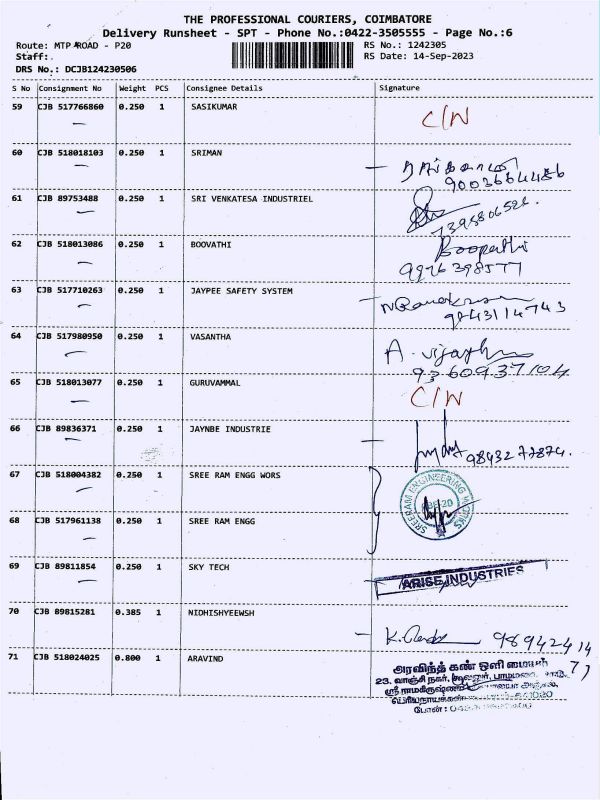 THE PROFESSIONAL COURIERS, COIMBATORE
Delivery Runsheet - SPT - Phone No.:0422-3505555 - Page No.:6
Route: MTP ROAD - P20 RS No.: 1242305
Staff: RS Date: 14-Sep-2023
DRS No.: DCJB124230506
S No Consignment No Weight PCS Consignee Details Signature
59 CJB 517766860 0.250 1 SASIKUMAR C/N
60 CJB 518018103 0.250 1 SRIMAN
9003664486
61 CJB 89753488 0.250 1 SRI VENKATESA INDUSTRIEL
7395806526.
62 CJB 518013086 0.250 1 BOOVATHI Boopathi
9976398577
63 CJB 517710263 0.250 1 JAYPEE SAFETY SYSTEM
9843114743
64 CJB 517980950 0.250 1 VASANTHA A. 
9360937104
65 CJB 518013077 0.250 1 GURUVAMMAL C/N
66 CJB 89836371 0.250 1 JAYNBE INDUSTRIE
9843277874.
67 CJB 518004382 0.250 1 SREE RAM ENGG WORS
SREERAM ENGINEERING WORKS
68 CJB 517961138 0.250 1 SREE RAM ENGG
69 CJB 89811854 0.250 1 SKY TECH
ARISE INDUSTRIES
70 CJB 89815281 0.385 1 NIDHISHYEEWSH
K. 98942414
77
71 CJB 518024025 0.800 1 ARAVIND
அரவிந்த் கண் ஒளி மையம்
23, வாஞ்சி நகர்,